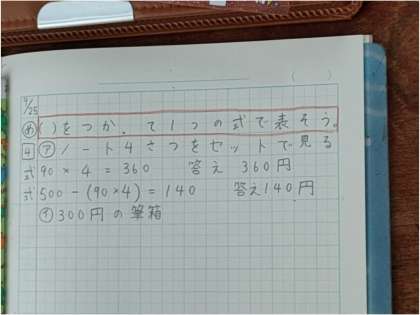 9/25
め ( )をつかって1つの式で表そう。
4 ア ノート4さつをセットで見る
式 90×4=360 答え 360円
式 500-(90×4)=140 答え140円
イ 300円の筆箱